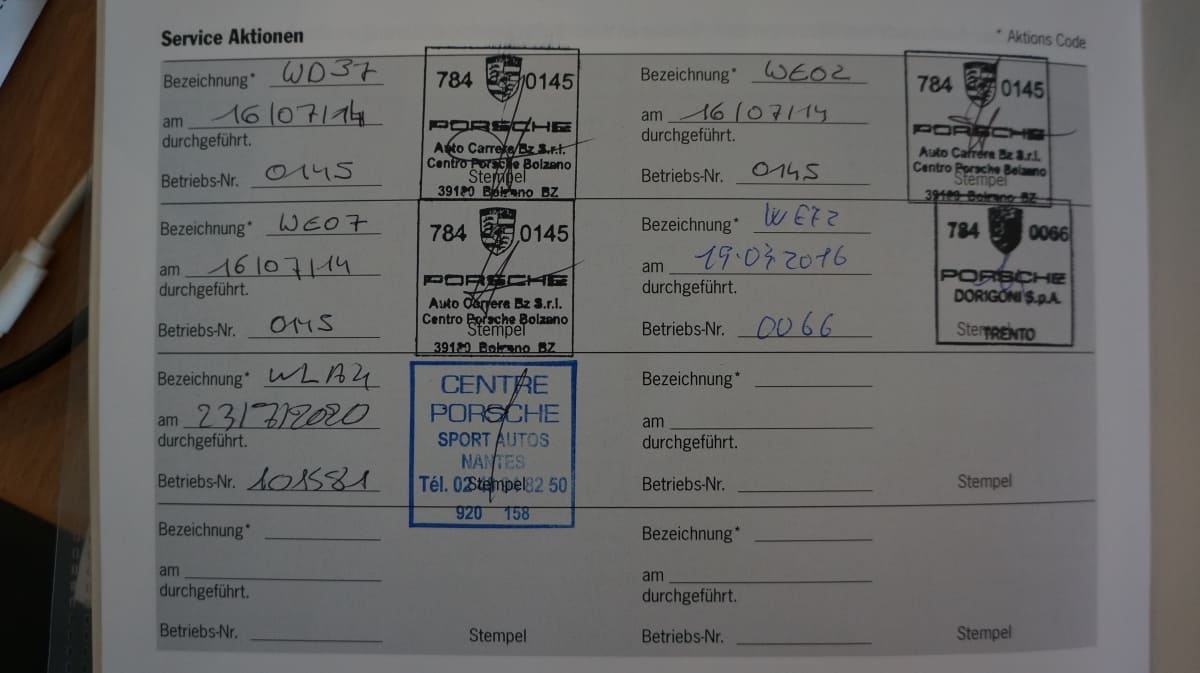 Service Aktionen
* Aktions Code
Bezeichnung* WD37
am 16/07/14
durchgeführt.
Betriebs-Nr. 0145
784 0145
PORSCHE
Auto Carrera Bz S.r.l.
Centro Porsche Bolzano
Stempel
39100 Bolzano BZ
Bezeichnung* WE02
am 16/07/14
durchgeführt.
Betriebs-Nr. 0145
784 0145
PORSCHE
Auto Carrera Bz S.r.l.
Centro Porsche Bolzano
Stempel
39100 Bolzano BZ
Bezeichnung* WE07
am 16/07/14
durchgeführt.
Betriebs-Nr. 0145
784 0145
PORSCHE
Auto Carrera Bz S.r.l.
Centro Porsche Bolzano
Stempel
39100 Bolzano BZ
Bezeichnung*
am
durchgeführt.
Betriebs-Nr. 0066
784 0066
PORSCHE
DORIGONI S.p.A.
TRENTO
Bezeichnung*
am 23/7/2020
durchgeführt.
Betriebs-Nr.
CENTRE
PORSCHE
SPORT AUTOS
NANTES
Tél. 02 82 50
Stempel
920 158
Bezeichnung*
am
durchgeführt.
Betriebs-Nr.
Stempel
Bezeichnung*
am
durchgeführt.
Betriebs-Nr.
Stempel
Bezeichnung*
am
durchgeführt.
Betriebs-Nr.
Stempel